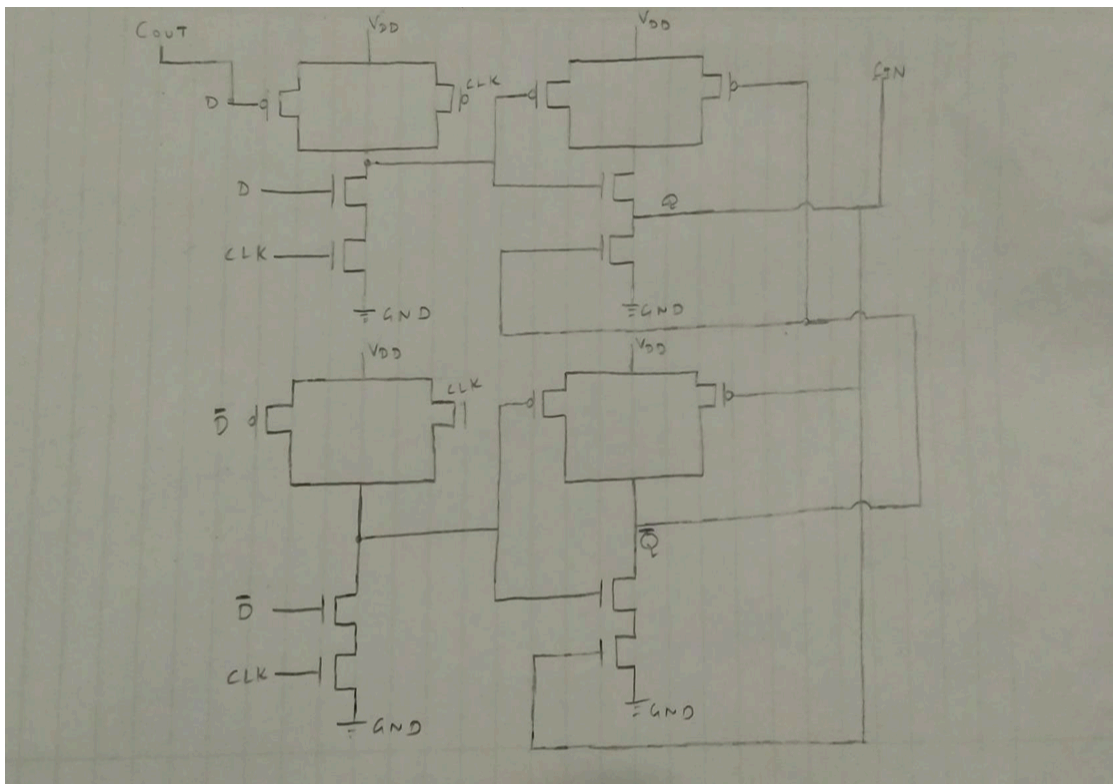 COUT
VDD
VDD
CIN
D
CLK
D
Q
CLK
GND
GND
VDD
VDD
D̅
CLK
Q̅
D̅
CLK
GND
GND